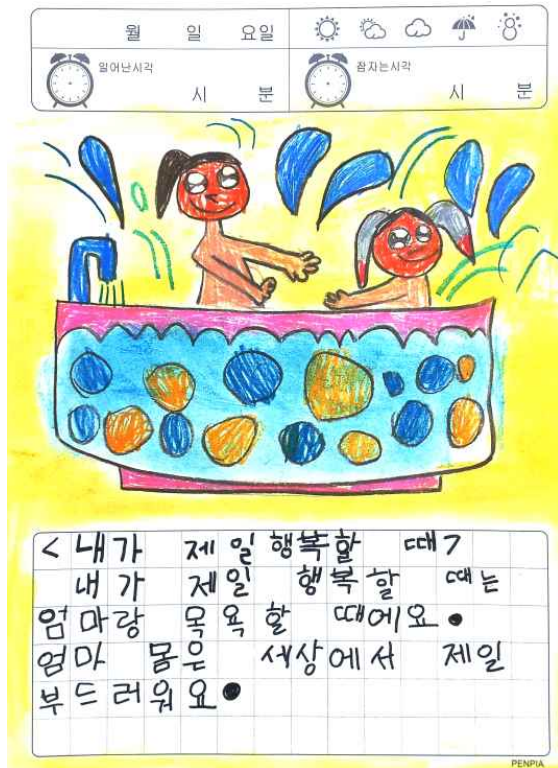 월 일 요일
일어난시각
시 분
잠자는시각
시 분
< 내가 제일 행복할 때 >
내가 제일 행복할 때는
엄마랑 목욕할 때에요.
엄마 몸은 세상에서 제일
부드러워요.
PENPIA